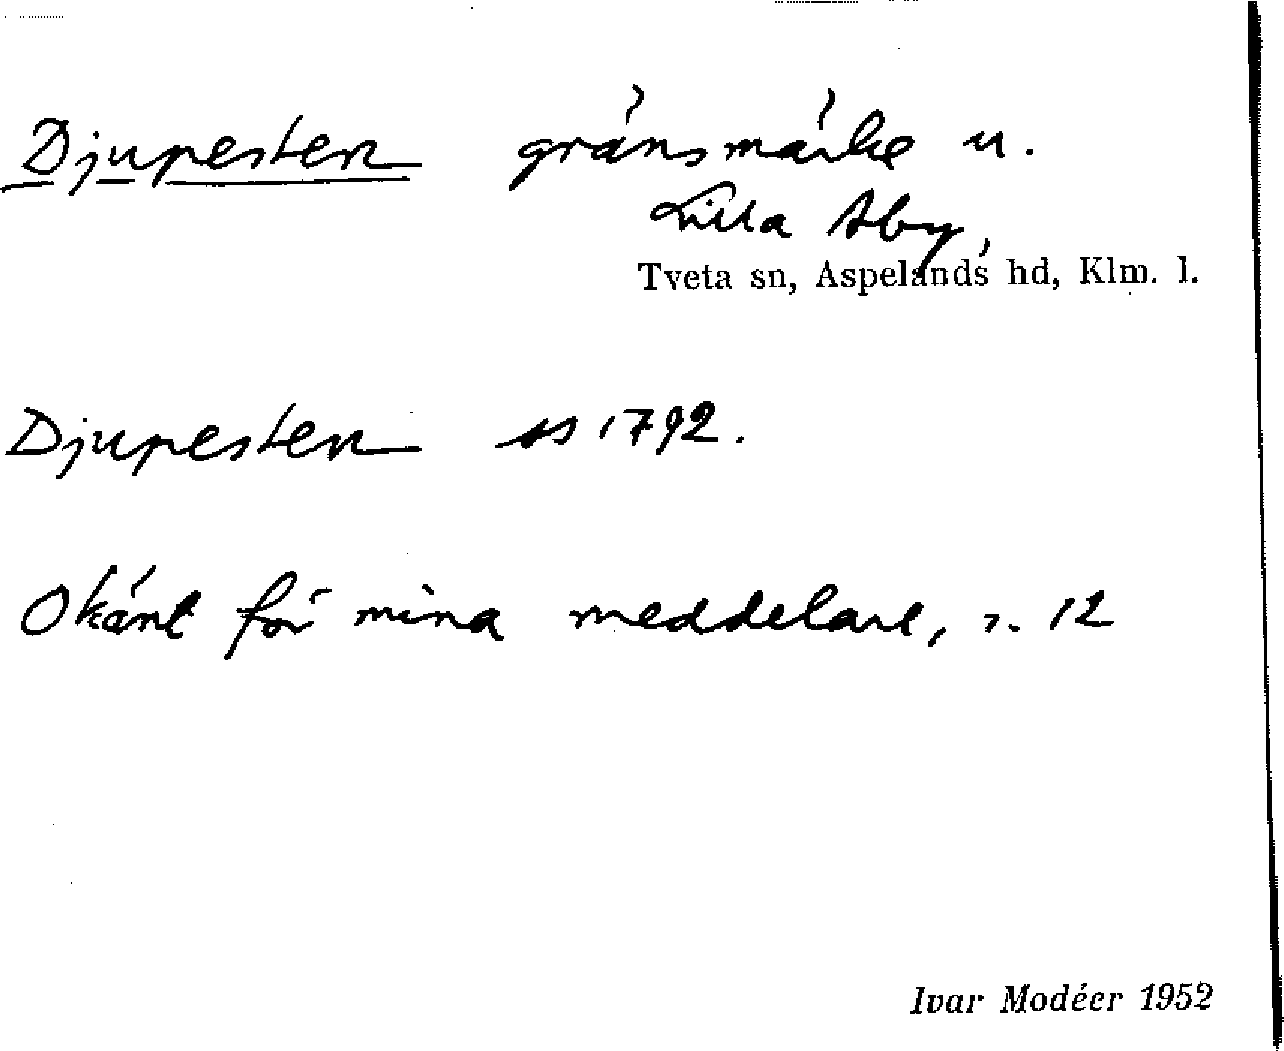 Djupesten gränsmärke u.
Lilla Aby,
Tveta sn, Aspelands hd, Klm. l.
Djupesten ss 1792.
Okänt för mina meddelare, s. 12
Ivar Modéer 1952